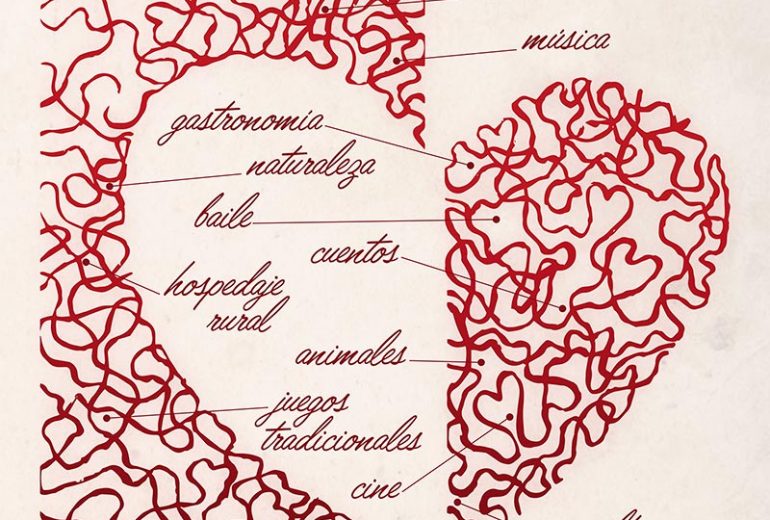 música
gastronomía
naturaleza
baile
cuentos
hospedaje
rural
animales
juegos
tradicionales
cine